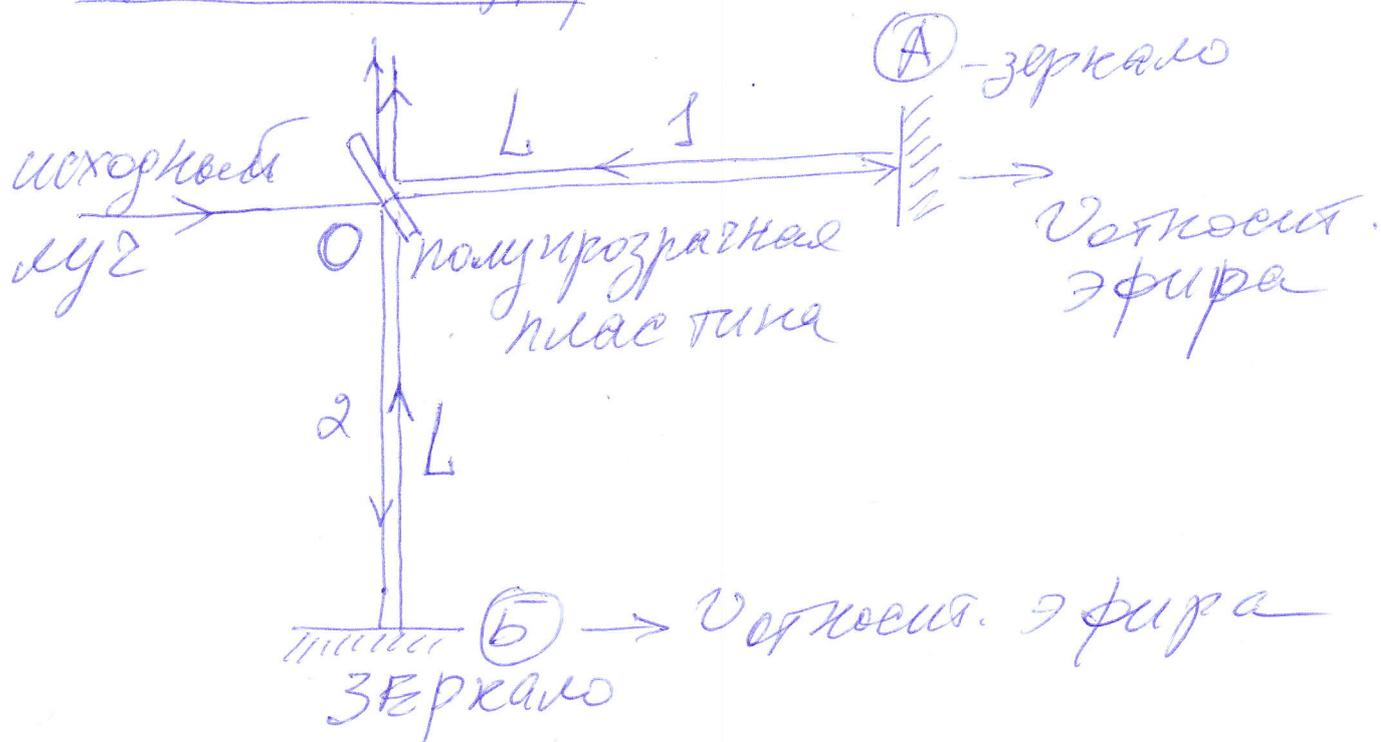 А - зеркало
L 1
исходный
луч
О
полупрозрачная
пластина
v относит.
эфира
2
L
Б
v относит. эфира
зеркало